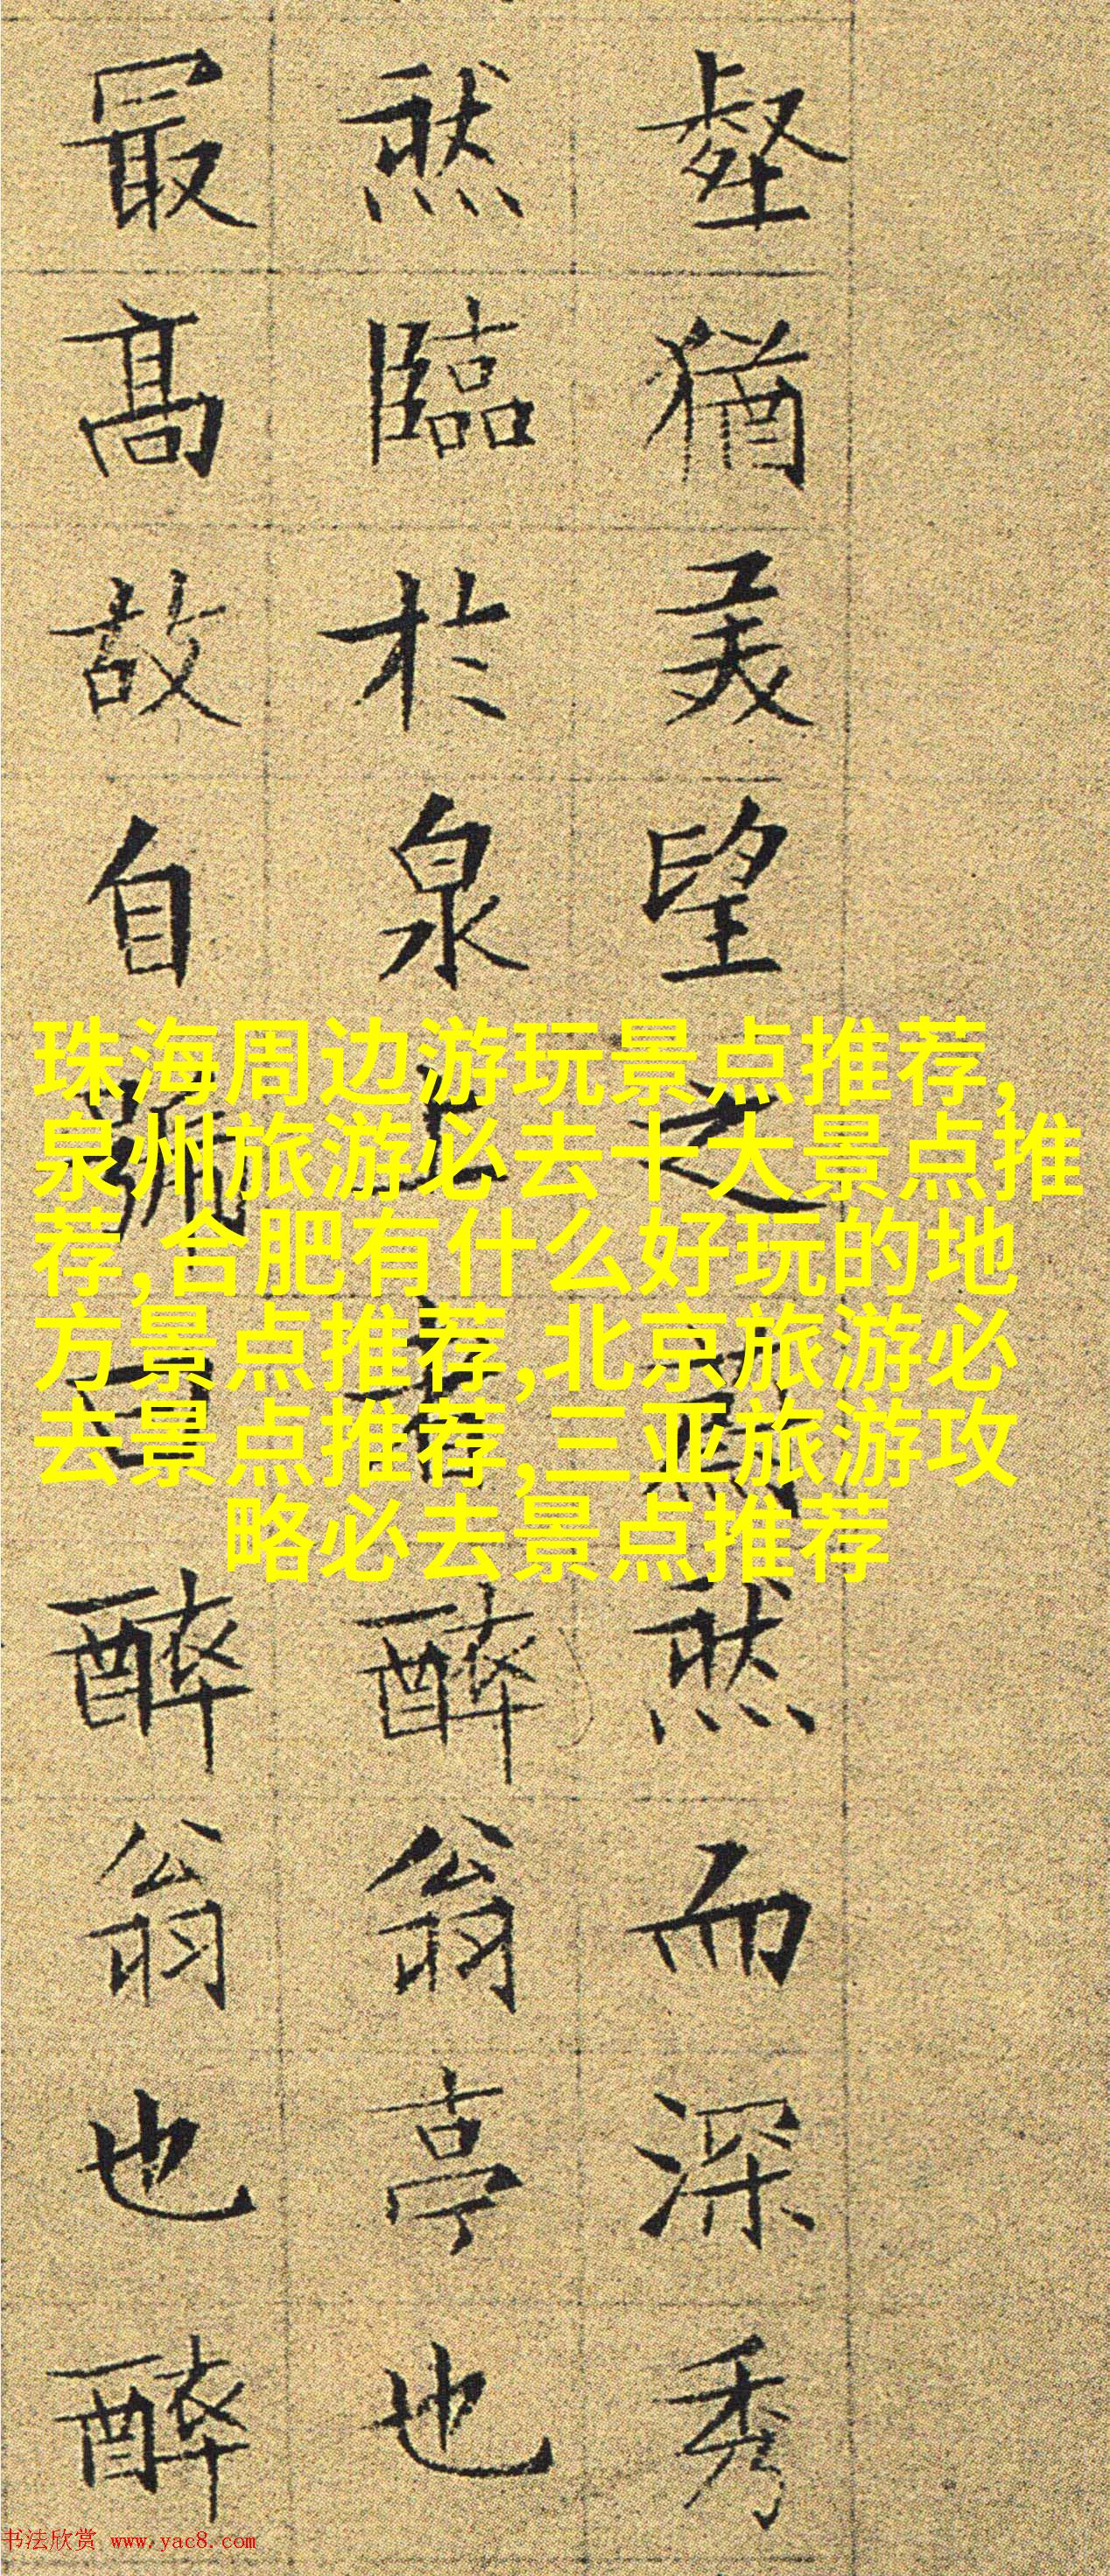 壑猶美望之蔚然而深秀
然臨於泉上者醉翁亭也
最高故自號曰醉翁也醉
珠海周边游玩景点推荐,
泉州旅游必去十大景点推
荐,合肥有什么好玩的地
方景点推荐,北京旅游必
去景点推荐,三亚旅游攻
略必去景点推荐
书法欣赏 www.yac8.com